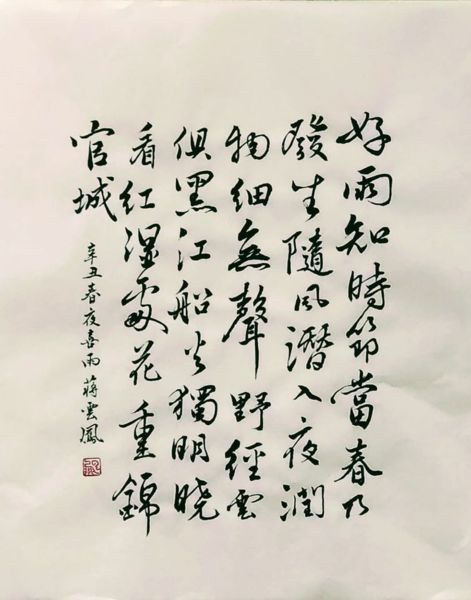 好雨知時節當春乃
發生隨風潛入夜潤
物細無聲野經雲
俱黑江船火獨明晓
看紅湿處花重錦
官城
辛丑春夜喜雨蔣雲鳳